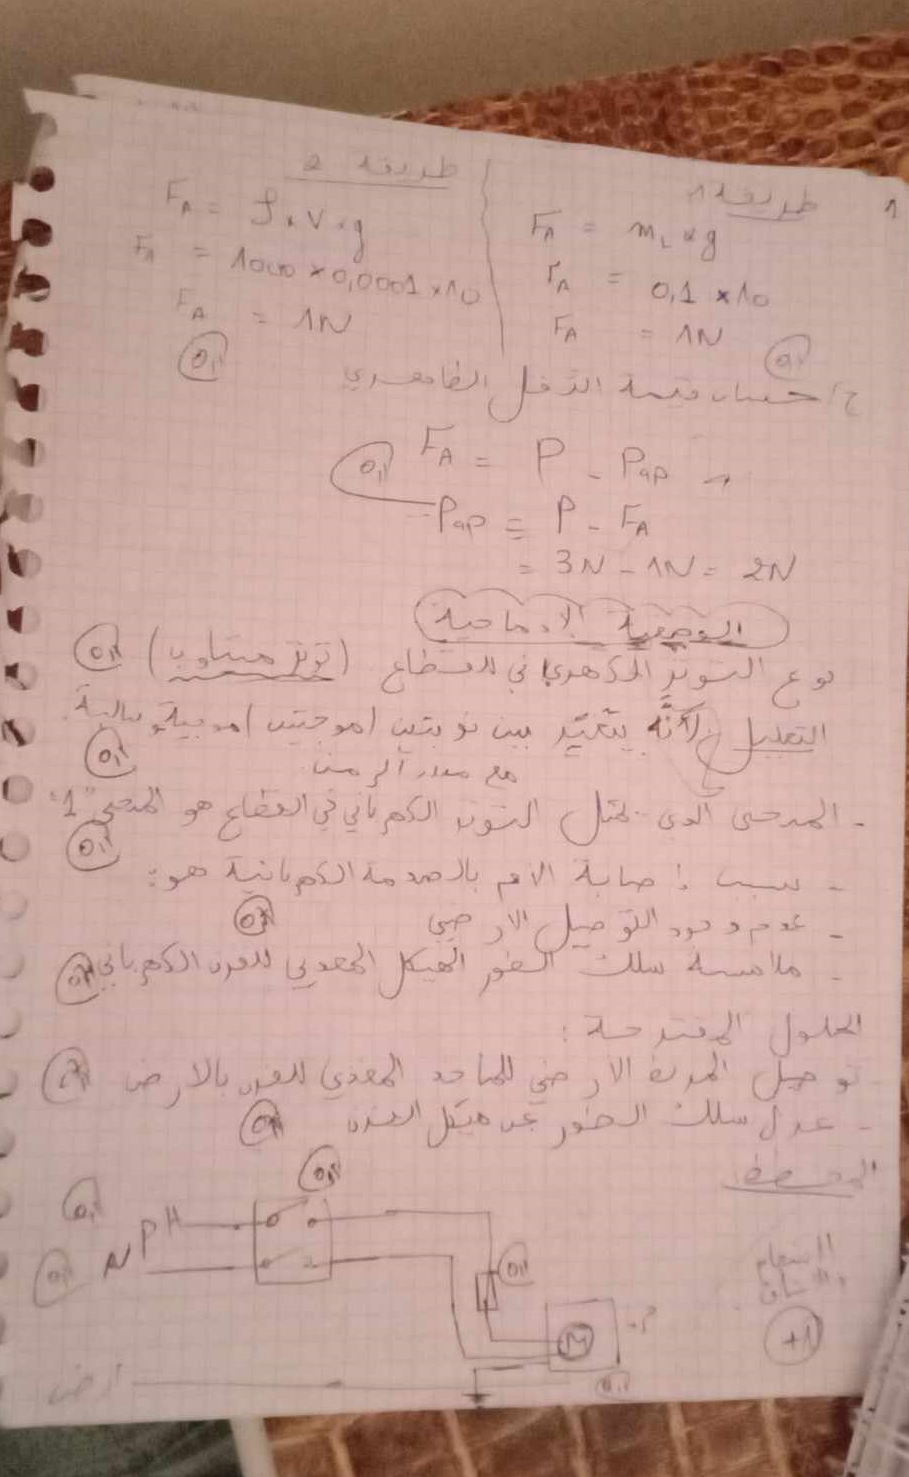 1
طريقة 1
F_A = m_L × g
F_A = 0,1 × 10
F_A = 1N
طريقة 2
F_A = ρ . V . g
F_A = 1000 × 0,0001 × 10
F_A = 1N
ج/ حساب قيمة الثقل الظاهري
F_A = P - Pap →
Pap = P - F_A
= 3N - 1N = 2N
الوضعية الادماجية
نوع التوتر الكهربائي في القطاع (توتر متناوب)
التعليل لأنه يتغير بين نوبتين (موجبتين) موجبة وسالبة
مع مدار الزمن
- المنحى الذي يمثل التوتر الكهربائي في القطاع هو المنحى "1"
- سبب إصابة الام بالصدمة الكهربائية هو:
- عدم وجود التوصيل الارضي
- ملامسة سلك الطور الهيكل المعدني للفرن الكهربائي
الحلول المقترحة:
- توصيل المربط الارضي للمأخذ المغذي للفرن بالارض
- عزل سلك الطور عن هيكل الفرن
المخطط
PH
N
M
أرض
+1